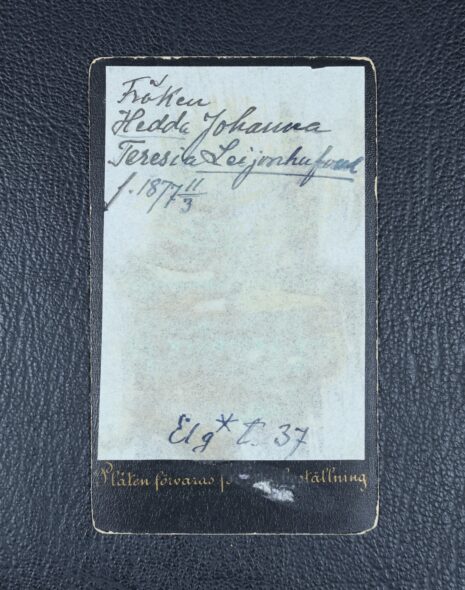 Fröken
Hedda Johanna
Teresia Leijonhufvud
f. 1877 11/3
Elg* t. 37
Plåten förvaras ställning